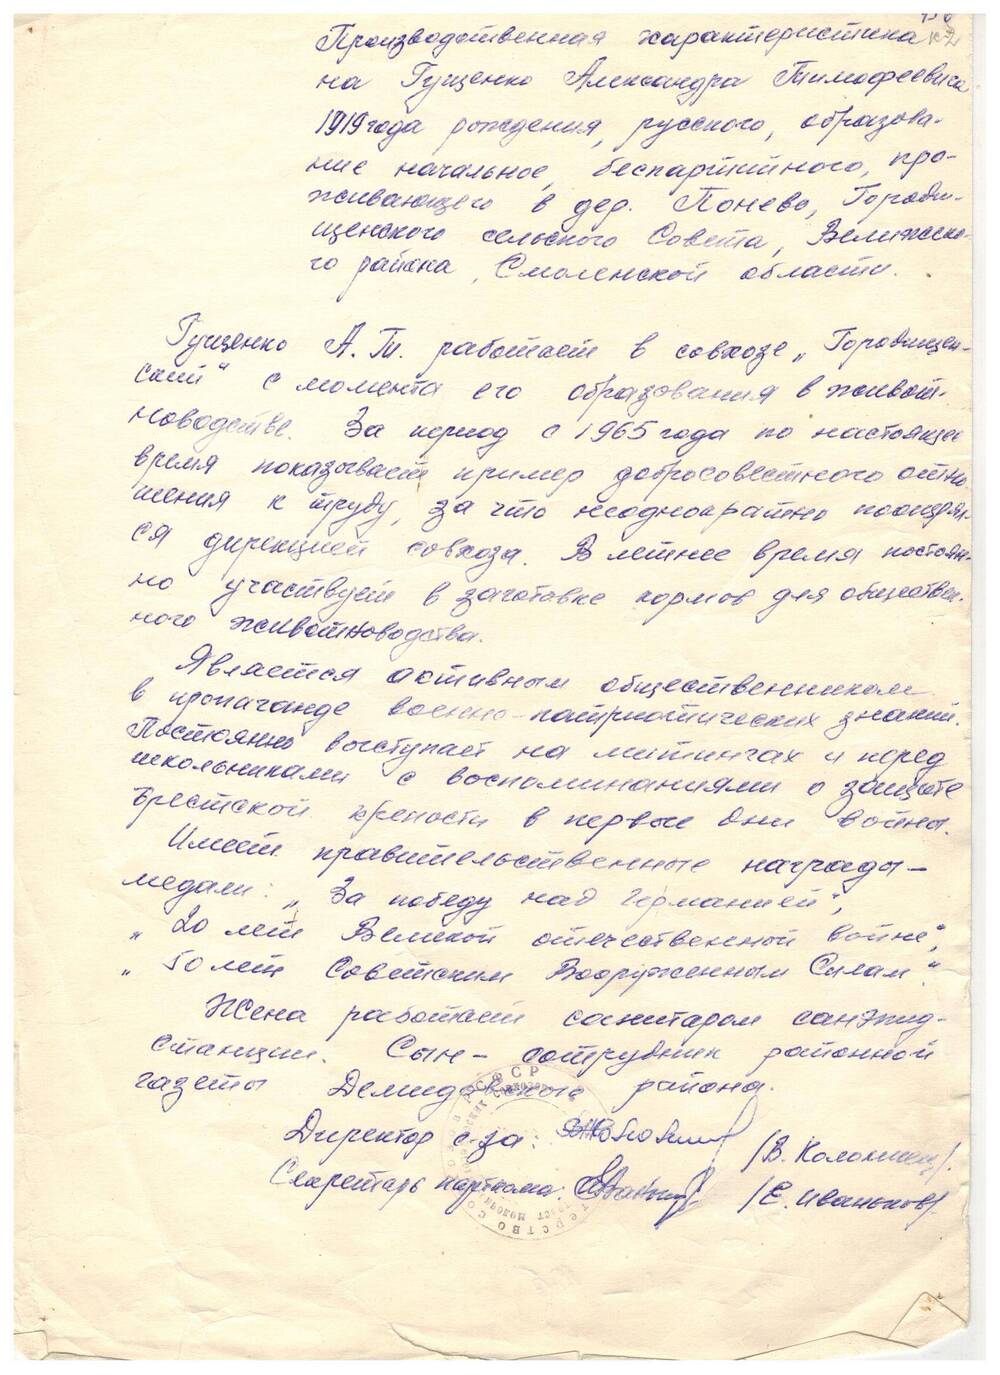 Производственная характеристика
на Гущенко Александра Тимофеевича
1919 года рождения, русского, образова-
ние начальное, беспартийного, про-
живающего в дер. Понево, Городи-
щенского сельского Совета, Велижско-
го района, Смоленской области.
Гущенко А.Т. работает в совхозе „Городищен-
ский" с момента его образования в живот-
новодстве. За период с 1965 года по настоящее
время показывает пример добросовестного отно
шения к труду, за что неоднократно поощрял-
ся дирекцией совхоза. В летнее время постоян-
но участвует в заготовке кормов для обществен-
ного животноводства.
Является активным общественником
в пропаганде военно-патриотических знаний.
Постоянно выступает на митингах и перед
школьниками с воспоминаниями о защите
Брестской крепости в первые дни войны.
Имеет правительственные награды –
медали: „За победу над Германией",
„20 лет Великой отечественной войне",
„50 лет Советским Вооруженным Силам".
Жена работает санитаром санэпид-
станции. Сын – сотрудник районной
газеты Демидовского района.
РСФСР
Директор с-за: /В. Коломиец/.
Секретарь парткома: /Е. Иваньков/